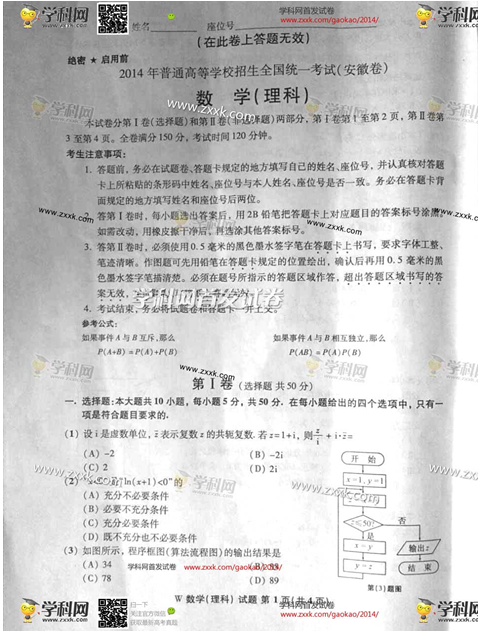 学科网首发试卷
www.zxxk.com/gaokao/2014/
姓名
座位号
(在此卷上答题无效)
绝密 ★ 启用前
2014 年普通高等学校招生全国统一考试(安徽卷)
数 学(理科)
本试卷分第Ⅰ卷(选择题)和第Ⅱ卷(非选择题)两部分，第Ⅰ卷第 1 至第 2 页，第Ⅱ卷第
3 至第 4 页。全卷满分 150 分，考试时间 120 分钟。
考生注意事项：
1. 答题前，务必在试题卷、答题卡规定的地方填写自己的姓名、座位号，并认真核对答题
卡上所粘贴的条形码中姓名、座位号与本人姓名、座位号是否一致。务必在答题卡背
面规定的地方填写姓名和座位号后两位。
2. 答第Ⅰ卷时，每小题选出答案后，用 2B 铅笔把答题卡上对应题目的答案标号涂黑。
如需改动，用橡皮擦干净后，再选涂其他答案标号。
3. 答第Ⅱ卷时，必须使用 0.5 毫米的黑色墨水签字笔在答题卡上书写，要求字体工整、
笔迹清晰。作图题可先用铅笔在答题卡规定的位置绘出，确认后再用 0.5 毫米的黑
色墨水签字笔描清楚。必须在题号所指示的答题区域作答，超出答题区域书写的答
案无效，
4. 考试结束，务必将试题卷和答题卡一并上交。
参考公式：
如果事件 A 与 B 互斥，那么
如果事件 A 与 B 相互独立，那么
P(A+B) = P(A)+P(B)
P(AB) = P(A)P(B)
第 Ⅰ 卷 (选择题 共 50 分)
一、选择题：本大题共 10 小题，每小题 5 分，共 50 分. 在每小题给出的四个选项中，只有一
项是符合题目要求的.
(1) 设 i 是虚数单位，z̄ 表示复数 z 的共轭复数. 若 z=1+i，则 z/i + i·z̄=
(A) -2
(B) -2i
(C) 2
(D) 2i
(2) ln(x+1)<0" 的
(A) 充分不必要条件
(B) 必要不充分条件
(C) 充分必要条件
(D) 既不充分也不必要条件
(3) 如图所示，程序框图(算法流程图)的输出结果是
(A) 34
(B) 55
(C) 78
(D) 89
开 始
x=1, y=1
z≤50?
否
是
x=y
y=z
输出 z
结 束
第(3)题图
W 数学(理科) 试题 第 1 页(共 4 页)
学科网首发试卷
www.zxxk.com/gaokao/2014/
扫一下
关注官方微信
获取最新高考真题
学科网
www.zxxk.com